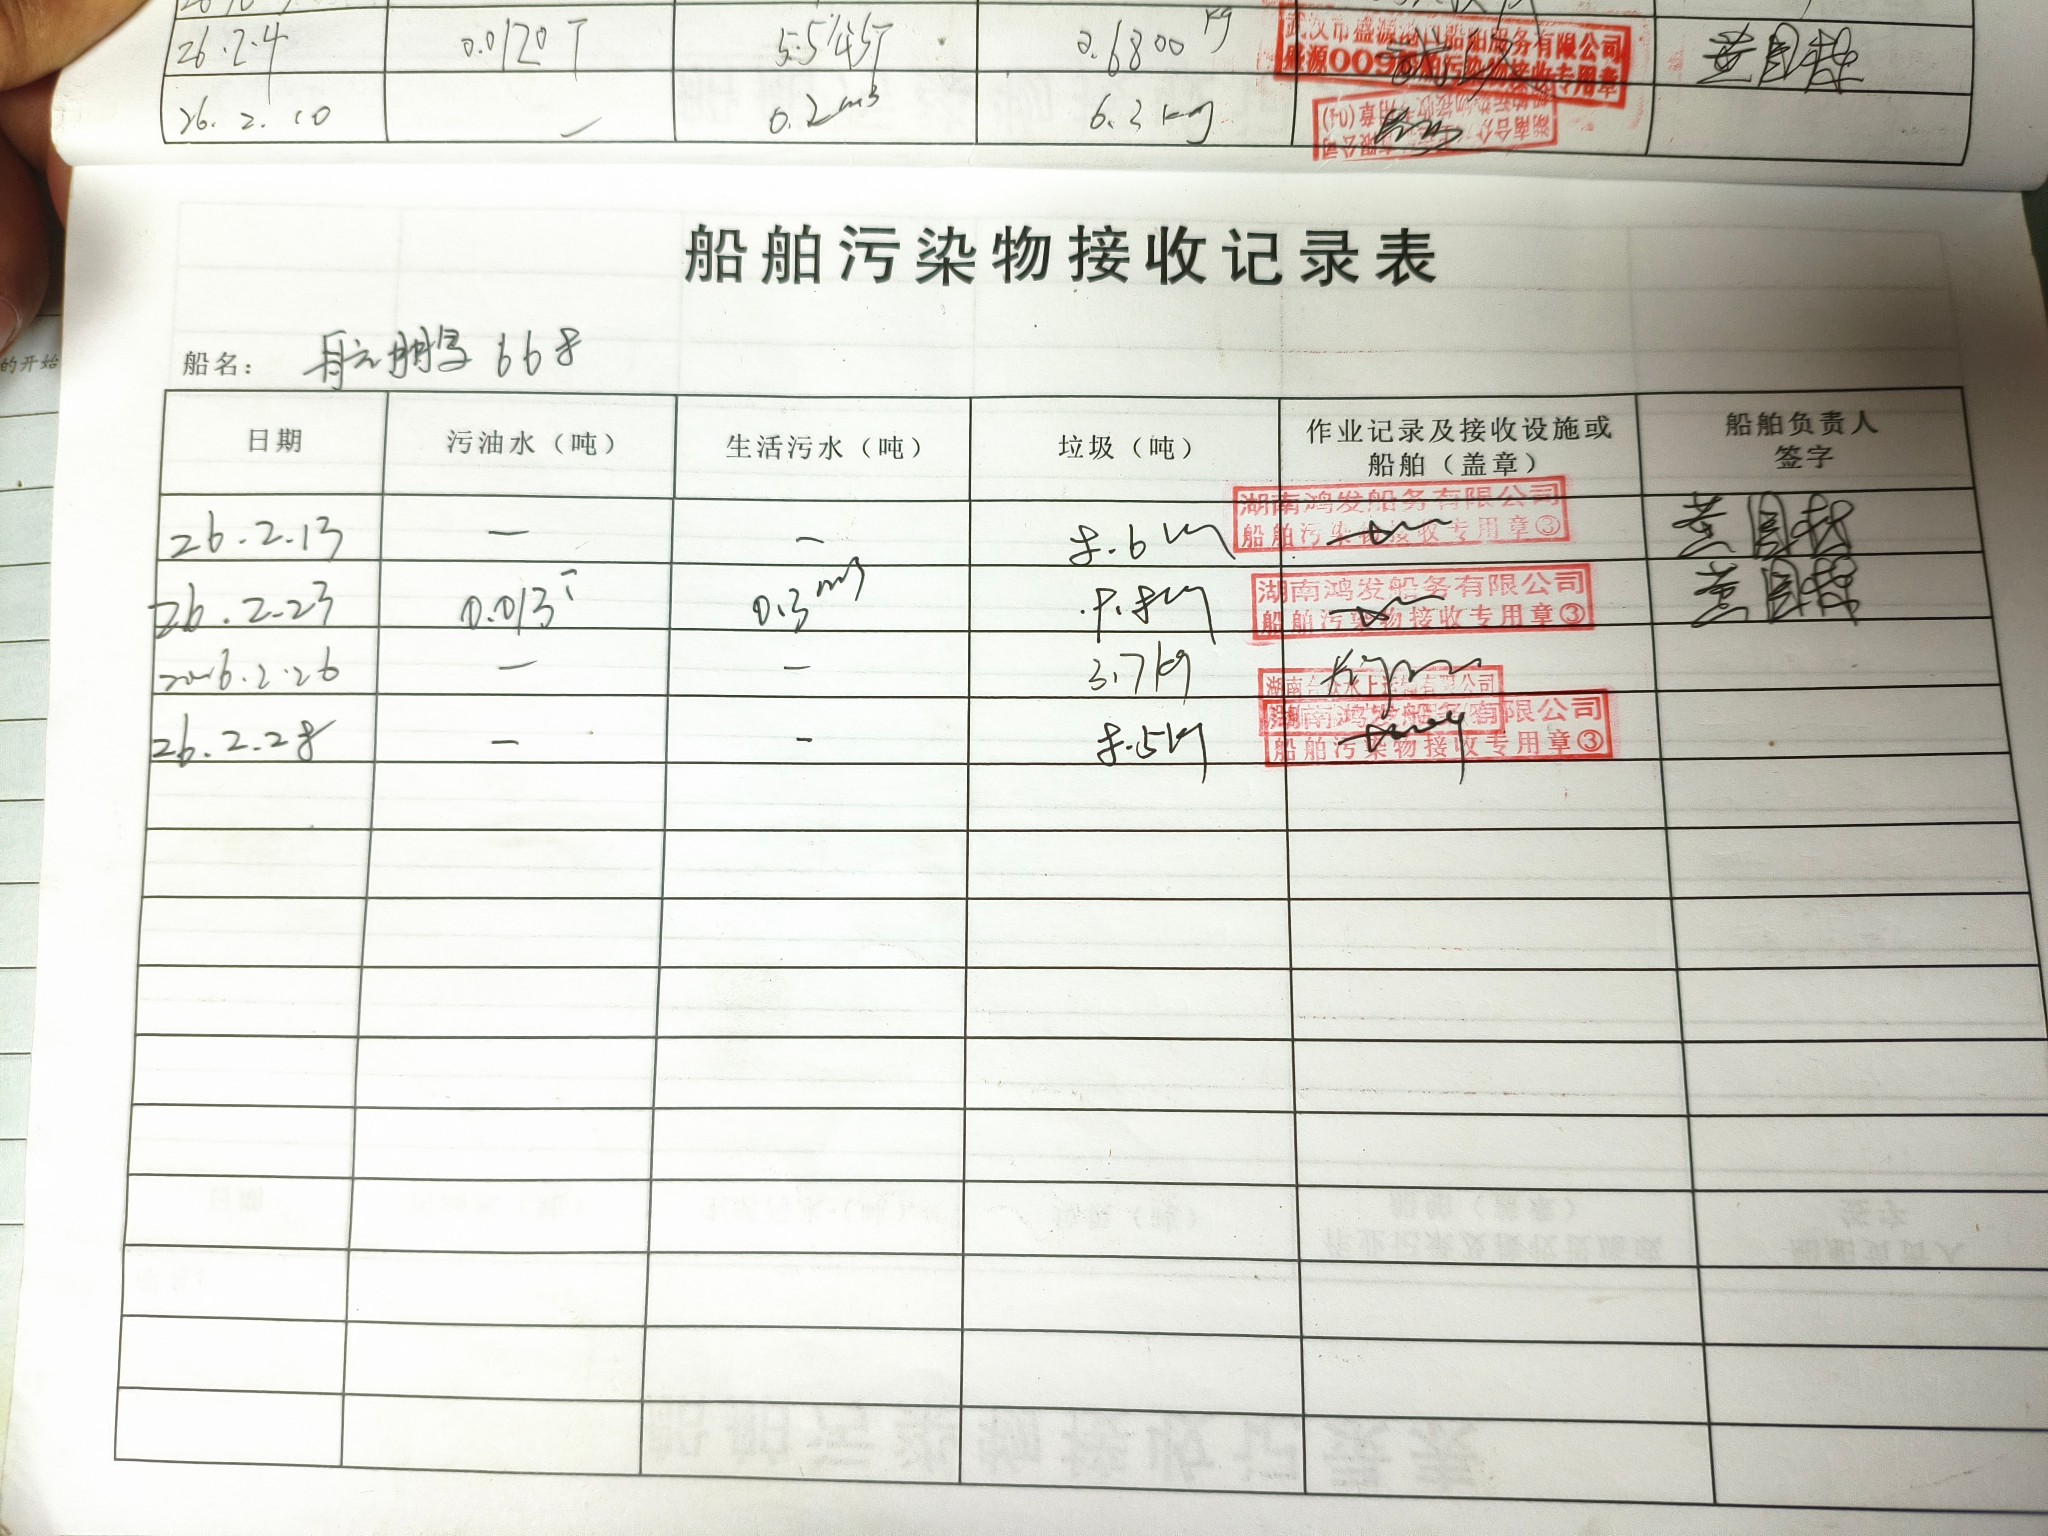 26.2.4 0.0120T 5.545T 0.6800kg 武汉市盛源 船舶服务有限公司
盛源009 污染物接收专用章
26.2.10 — 0.2m³ 6.2kg
船舶污染物接收记录表
的开始
船名: 668
日期 污油水（吨） 生活污水（吨） 垃圾（吨） 作业记录及接收设施或船舶（盖章） 船舶负责人签字
26.2.13 — — 8.6kg 湖南鸿发船务有限公司
船舶污染物接收专用章③
26.2.23 0.013T 0.3m³ 9.8kg 湖南鸿发船务有限公司
船舶污染物接收专用章③
2026.2.26 — — 3.7kg 湖南 水上 有限公司
26.2.28 — — 8.5kg 湖南鸿发船务有限公司
船舶污染物接收专用章③